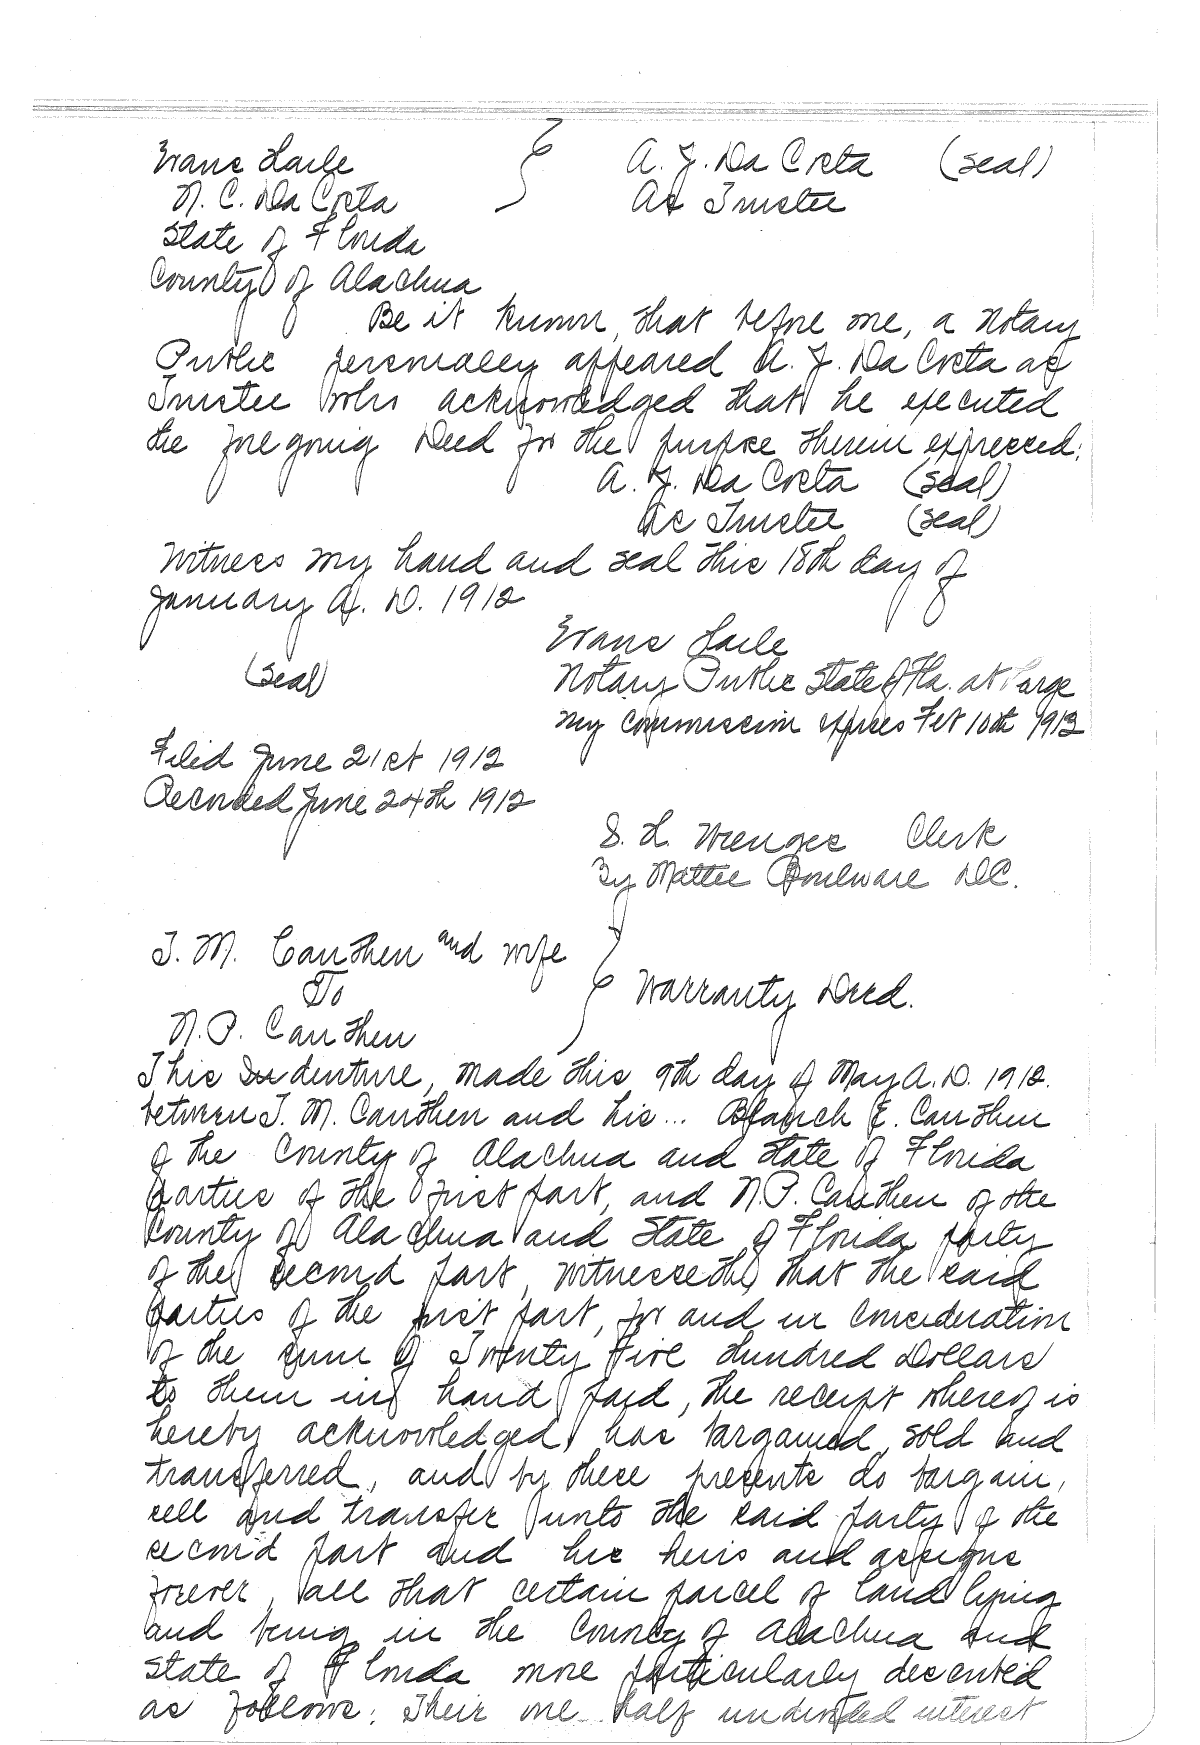 Evans Haile
A. J. Da Costa (seal)
N. C. Da Costa
As Trustee
State of Florida
County of Alachua
Be it known, that before me, a Notary
Public personally appeared A. J. Da Costa as
Trustee who acknowledged that he executed
the foregoing Deed for the purpose therein expressed.
A. J. Da Costa (seal)
As Trustee (seal)
Witness my hand and seal this 18th day of
January A. D. 1912
Evans Haile
(seal)
Notary Public State of Fla. at Large
My commission expires Feb 10th 1913
Filed June 21st 1912
Recorded June 24th 1912
S. H. Wienges Clerk
By Mattie Boulware D.C.
T. M. Cauthen and wife
To
Warranty Deed.
N. P. Cauthen
This Indenture, made this 9th day of May A. D. 1912.
between T. M. Cauthen and his ... Blanch E. Cauthen
of the County of Alachua and State of Florida
parties of the first part, and N. P. Cauthen of the
County of Alachua and State of Florida party
of the second part, witnesseth, that the said
parties of the first part, for and in consideration
of the sum of Twenty Five Hundred Dollars
to them in hand paid, the receipt whereof is
hereby acknowledged, has bargained, sold and
transferred, and by these presents do bargain,
sell and transfer unto the said party of the
second part and his heirs and assigns
forever, all that certain parcel of land lying
and being in the County of Alachua and
State of Florida more particularly described
as follows: Their one half undivided interest